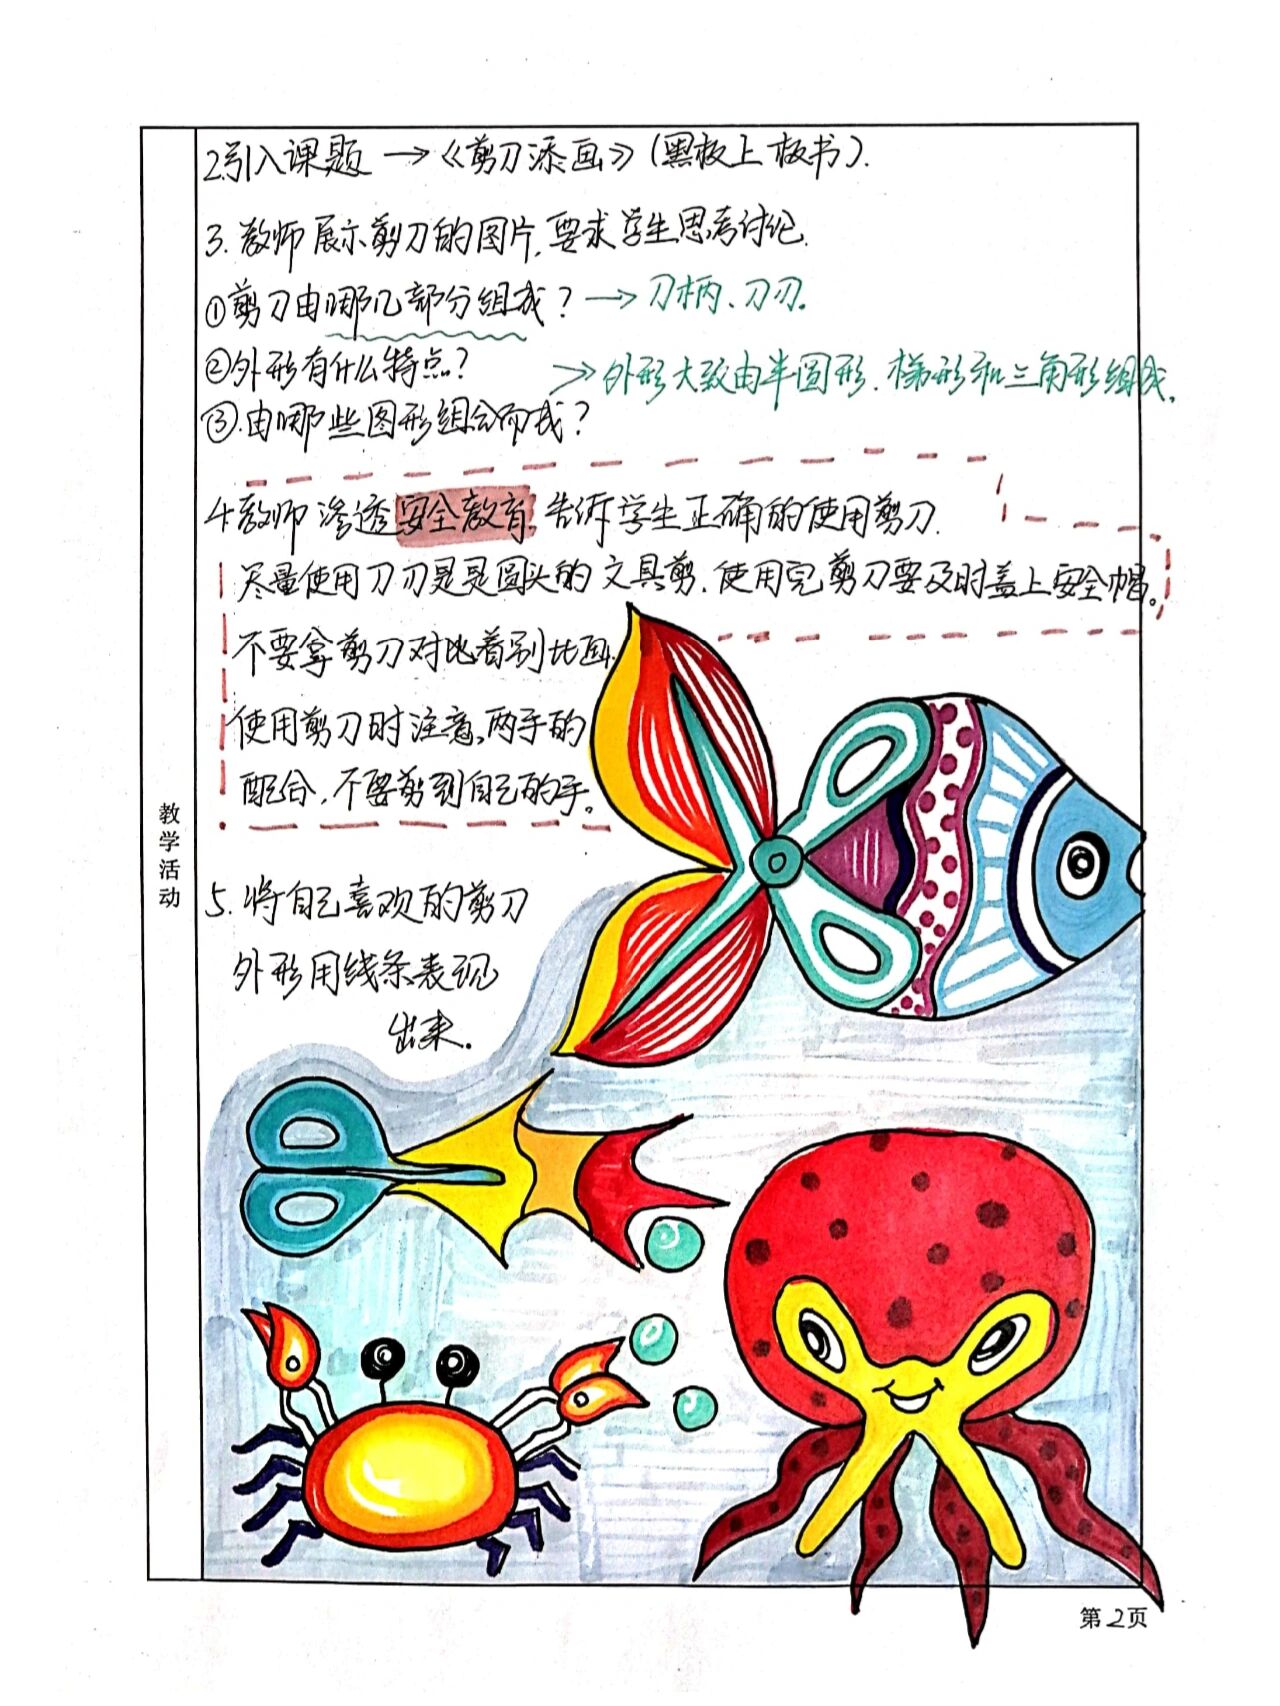 2.引入课题 →《剪刀添画》(黑板上板书).
3.教师展示剪刀的图片,要求学生思考讨论.
①剪刀由哪几部分组成? → 刀柄、刀刃.
②外形有什么特点?
→ 外形大致由半圆形、梯形和三角形组成.
③.由哪些图形组合而成?
4.教师渗透安全教育,告诉学生正确的使用剪刀.
尽量使用刀刃是是圆头的文具剪.使用完剪刀要及时盖上安全帽。
不要拿剪刀对比着别比画.
使用剪刀时注意,两手的
配合,不要剪到自己的手。
教学活动
5.将自己喜欢的剪刀
外形用线条表现
出来.
第2页